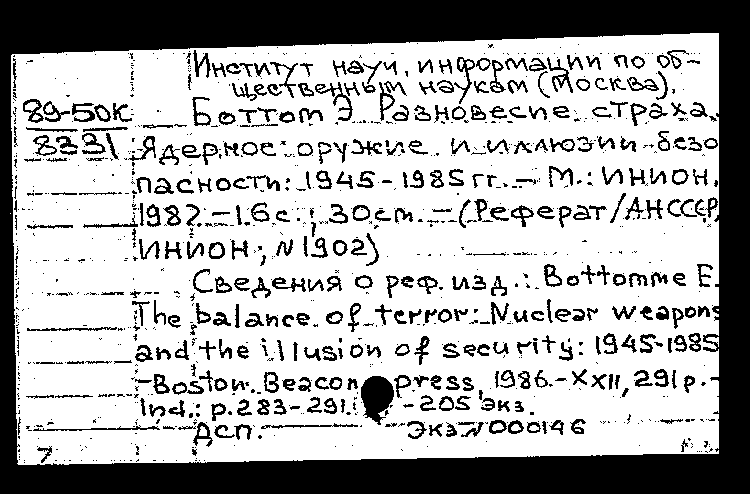 Институт науч. информации по об-
щественным наукам (Москва).
89-50К Боттом Э Равновесие страха.
8331 Ядерное оружие и иллюзии безо
пасности: 1945-1985 гг. - М.: ИНИОН,
1987. - 16 с.; 30 см. - (Реферат / АН СССР,
ИНИОН; N 1902)
Сведения о реф. изд.: Bottomme E.
The balance of terror: Nuclear weapons
and the illusion of security: 1945-1985
-Boston. Beacon press, 1986.-XXII, 291 p.-
Ind.: p. 283-291. -205 экз.
ДСП. Экз. N 000146
7